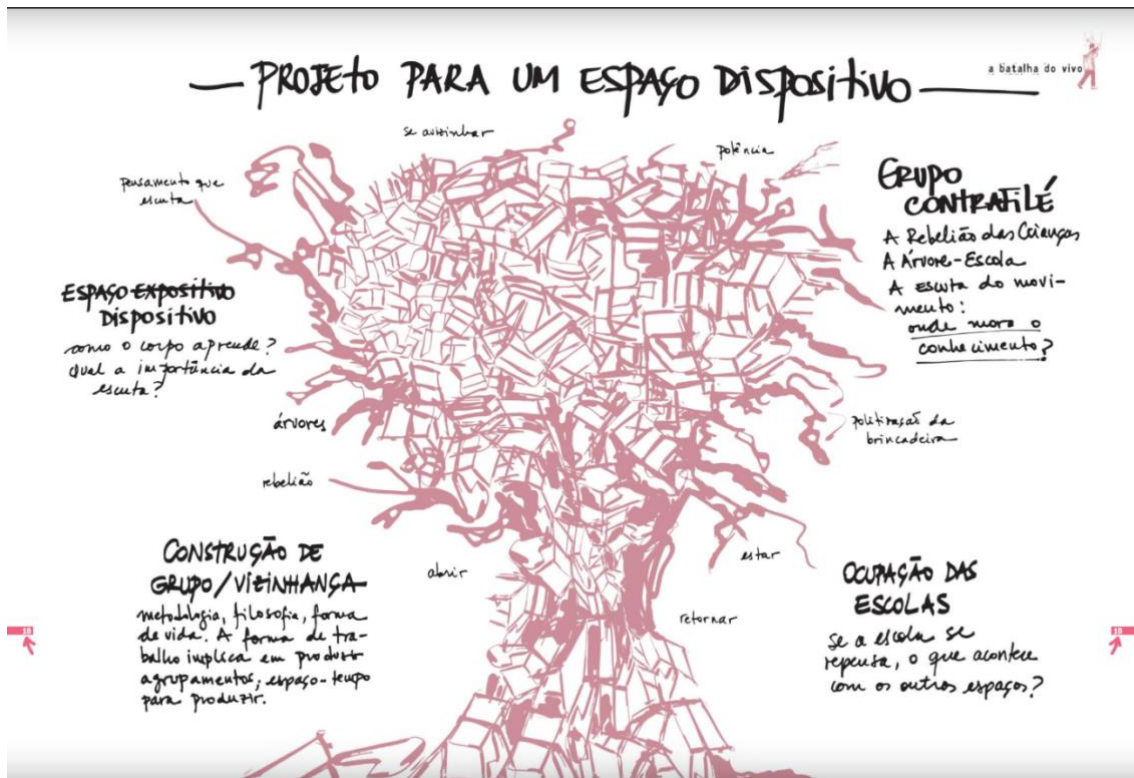 PROJETO PARA UM ESPAÇO DISPOSITIVO
a batalha do vivo
se avizinhar
potência
pensamento que
escuta
GRUPO
CONTRAFILÉ
A Rebelião das Crianças
A Árvore-Escola
A escuta do movi-
mento:
onde mora o
conhecimento?
ESPAÇO EXPOSITIVO
DISPOSITIVO
como o corpo aprende?
Qual a importância da
escuta?
árvores
politização da
brincadeira
rebelião
CONSTRUÇÃO DE
GRUPO/VIZINHANÇA
metodologia, filosofia, forma
de vida. A forma de tra-
balho implica em produzir
agrupamentos; espaço-tempo
para produzir.
abrir
estar
retornar
OCUPAÇÃO DAS
ESCOLAS
se a escola se
repensa, o que acontece
com os outros espaços?
18
19